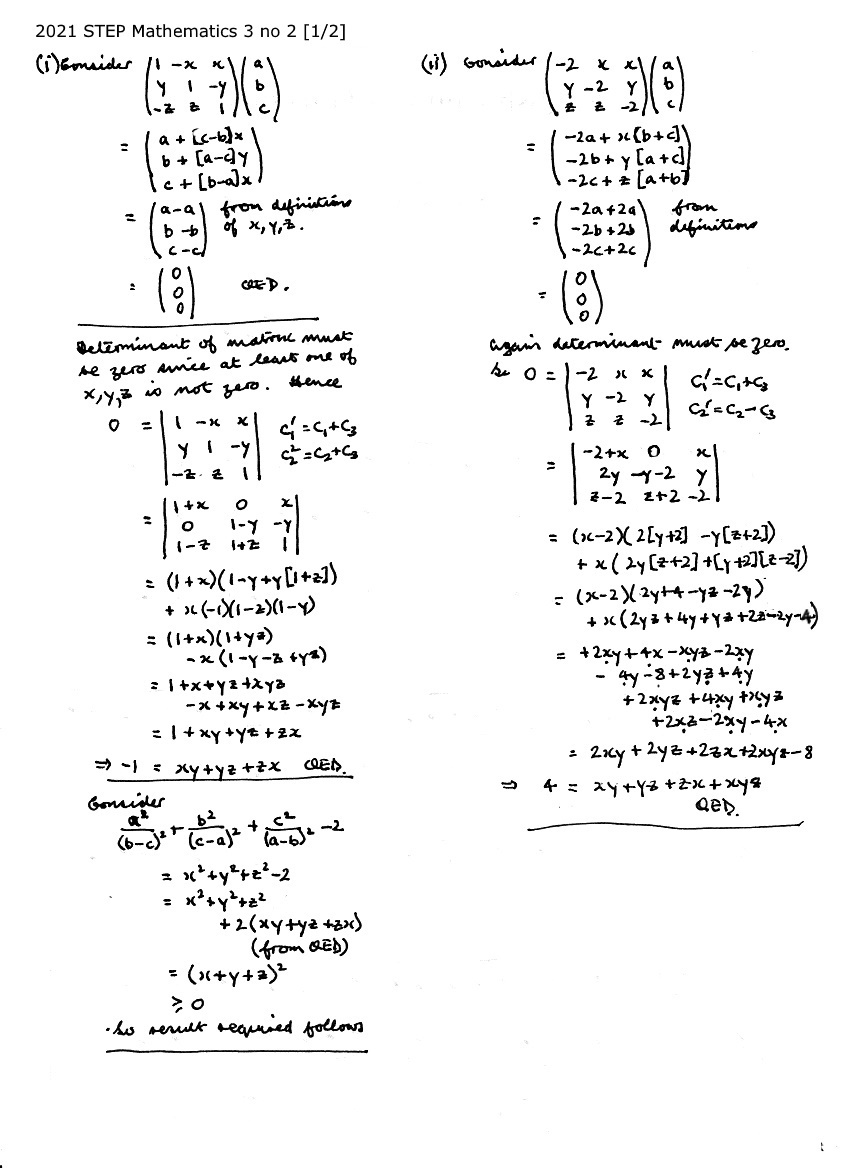 2021 STEP Mathematics 3 no 2 [1/2]
(i) Consider (1 -x x; y 1 -y; -z z 1)(a; b; c)
= (a + [c-b]x; b + [a-c]y; c + [b-a]x)
= (a-a; b-b; c-c) from definitions of x, y, z.
= (0; 0; 0) QED.
Determinant of matrix must
be zero since at least one of
x, y, z is not zero. Hence
0 = |1 -x x; y 1 -y; -z z 1| C₁' = C₁+C₃
C₂² = C₂+C₃
= |1+x 0 x; 0 1-y -y; 1-z 1+z 1|
= (1+x)(1-y+y[1+z])
+ x(-1)(1-z)(1-y)
= (1+x)(1+yz)
-x(1-y-z+yz)
= 1+x+yz+xyz
-x+xy+xz-xyz
= 1+xy+yz+zx
⇒ -1 = xy+yz+zx QED.
Consider
a²/(b-c)² + b²/(c-a)² + c²/(a-b)² -2
= x²+y²+z²-2
= x²+y²+z²
+2(xy+yz+zx)
(from QED)
= (x+y+z)²
≥ 0
. So result required follows
(ii) Consider (-2 x x; y -2 y; z z -2)(a; b; c)
= (-2a+x[b+c]; -2b+y[a+c]; -2c+z[a+b])
= (-2a+2a; -2b+2b; -2c+2c) from definitions
= (0; 0; 0)
Again determinant must be zero.
So 0 = |-2 x x; y -2 y; z z -2| C₁' = C₁+C₃
C₂' = C₂-C₃
= |-2+x 0 x; 2y -y-2 y; z-2 z+2 -2|
= (x-2)(2[y+2] -y[z+2])
+ x(2y[z+2]+[y+2][z-2])
= (x-2)(2y+4-yz-2y)
+ x(2yz+4y+yz+2z-2y-4)
= +2xy+4x-xyz-2xy
- 4y-8+2yz+4y
+2xyz+4xy+xyz
+2xz-2xy-4x
= 2xy+2yz+2zx+2xyz-8
⇒ 4 = xy+yz+zx+xyz
QED.